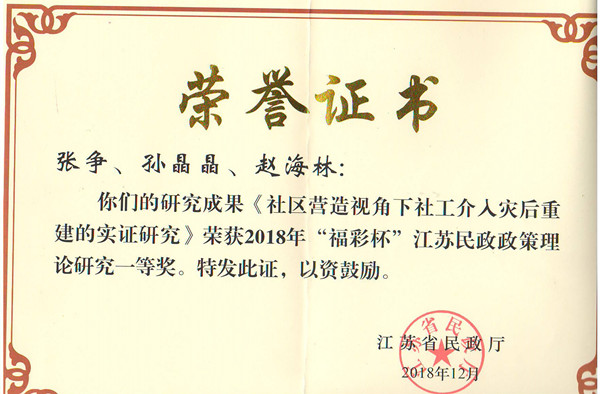 荣誉证书
张争、孙晶晶、赵海林：
你们的研究成果《社区营造视角下社工介入灾后重
建的实证研究》荣获2018年“福彩杯”江苏民政政策理
论研究一等奖。特发此证，以资鼓励。
江苏省民政厅
江苏省民政厅
2018年12月